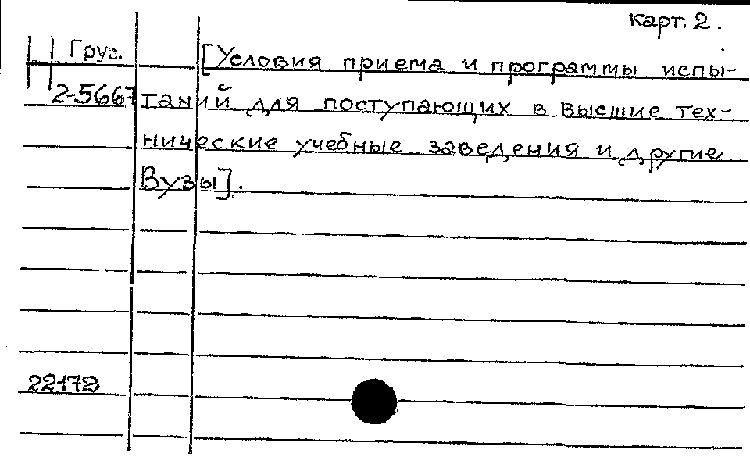 карт. 2.
Груз.
[Условия приема и программы испы-
2-5667 таний для поступающих в высшие тех-
нические учебные заведения и другие
Вузы].
22172